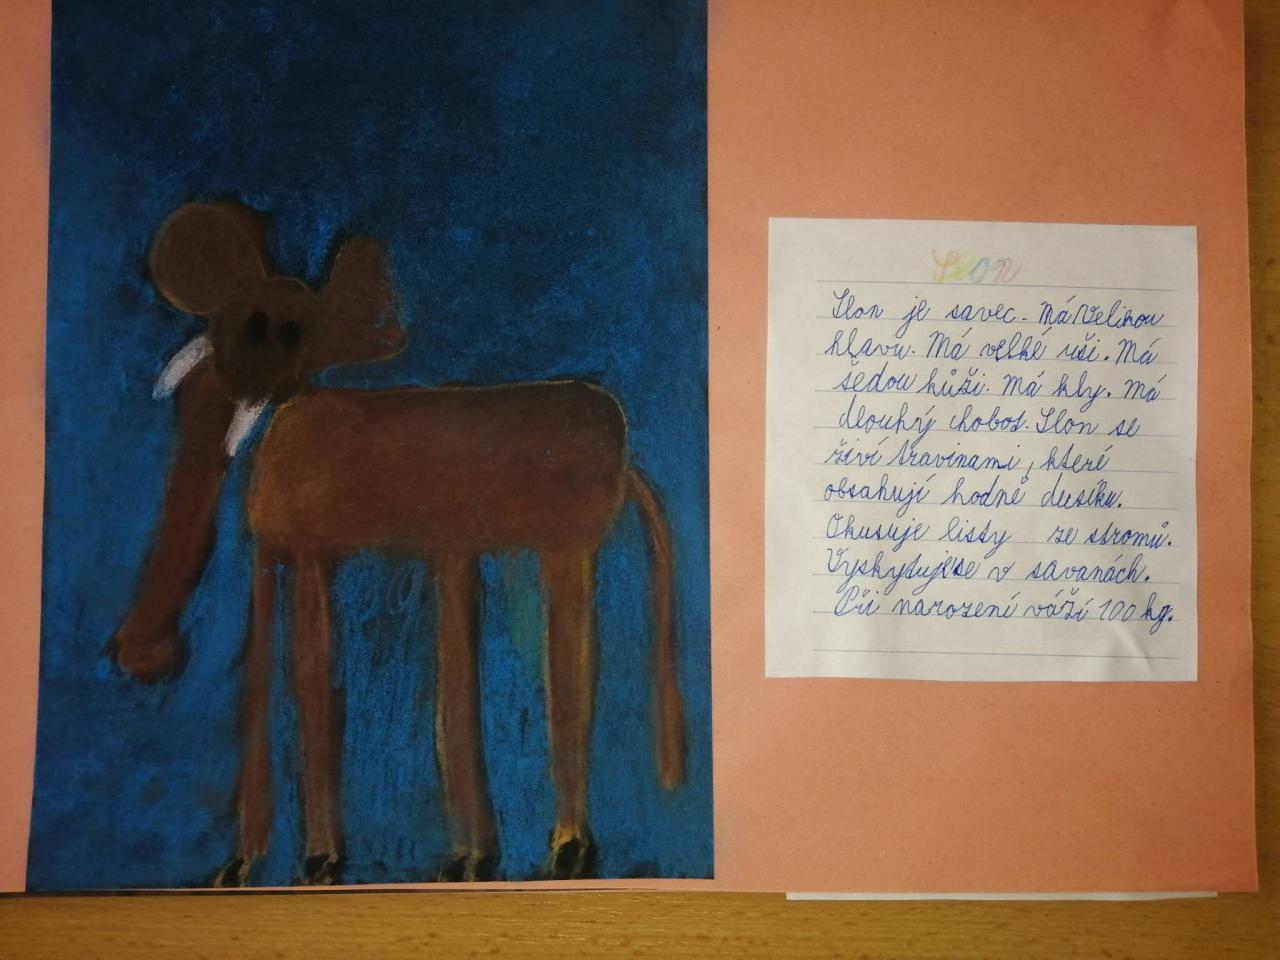 Slon
Slon je savec. Má velikou
hlavu. Má velké uši. Má
šedou kůži. Má kly. Má
dlouhý chobot. Slon se
živí travinami, které
obsahují hodně dusíku.
Okusuje listy ze stromů.
Vyskytuje se v savanách.
Při narození váží 100 kg.